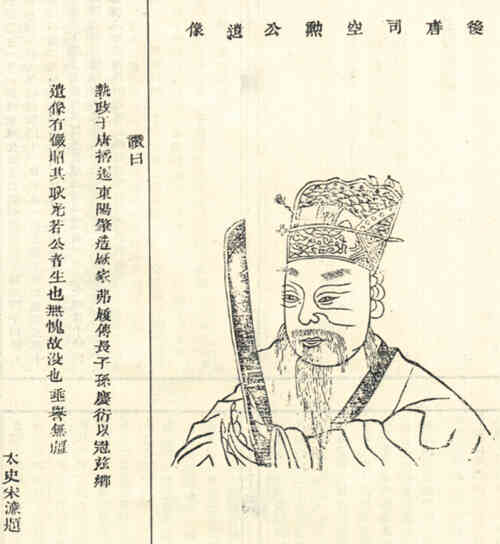 後唐司空勳公遺像
讚曰
執政于唐播遷東陽肇造厥家履傳長子孫慶衍以冠茲鄉
遺像有儼昭其耿光若公者生也無愧故没也垂譽無疆
太史宋濂題